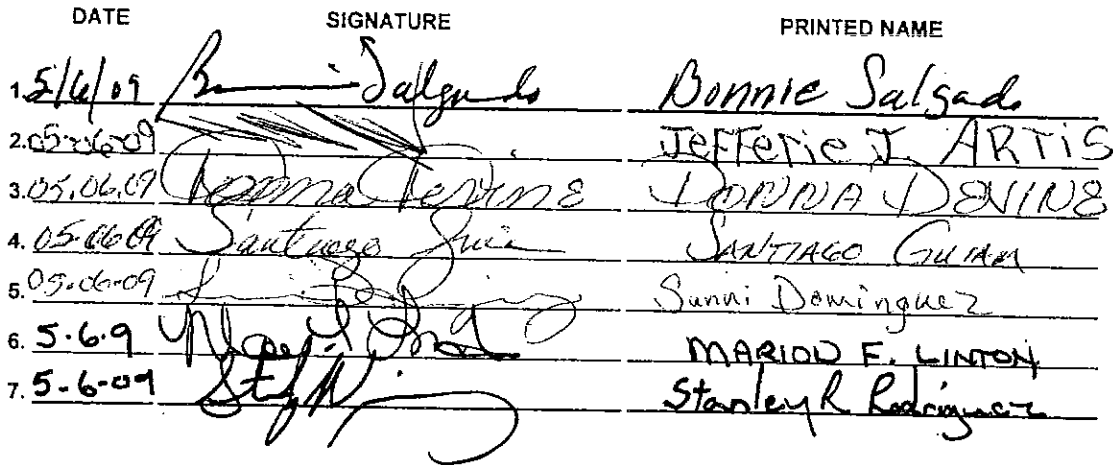 DATE SIGNATURE PRINTED NAME
1. 5/6/09 Bonnie Salgado Bonnie Salgado
2. 05-06-09 Jefferie J ARTIS
3. 05.06.09 Donna Devine DONNA DEVINE
4. 05-06-09 Santiago SANTIAGO
5. 05-06-09 Sunni Dominguez
6. 5-6-9 MARION F. LINTON
7. 5-6-09 Stanley R Rodriguez